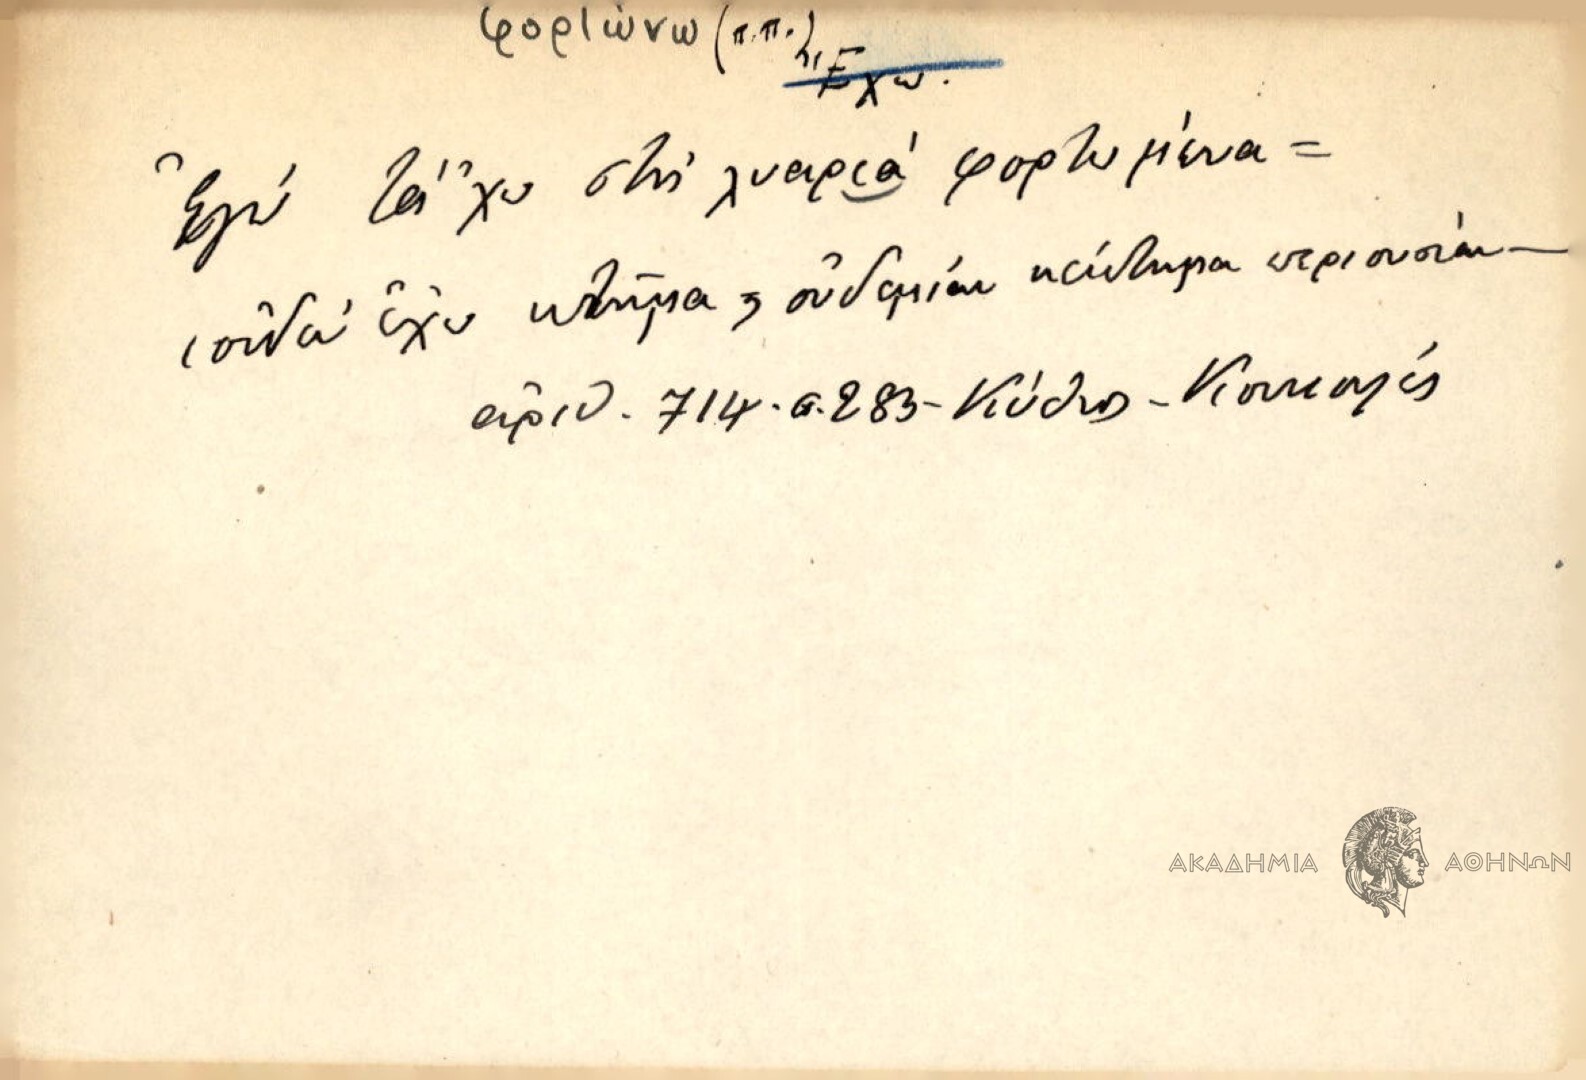 φορτώνω (π.π.)
ἤ Ἔχω.
Ἐγώ τά ἔχω στή λυαριά φορτωμένα =
οὐδέν ἔχω κτῆμα, οὐδεμίαν κτῆμα περιουσίαν —
ἀριθ. 714. σ. 283 - Κύθνος - Κουκουλές
ΑΚΑΔΗΜΙΑ ΑΘΗΝΩΝ